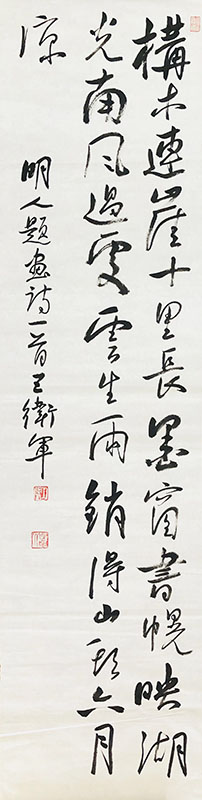 構木連崖十里長墨窗書幌映湖
光南風過處雲生雨銷得山頭六月
涼
明人題畫詩一首王衛軍